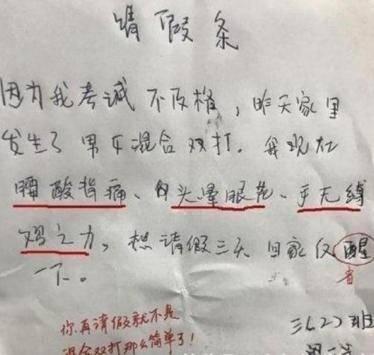 请假条
因为我考试不及格，昨天家里
发生了男女混合双打。我现在
腰酸背痛、白头晕眼花、手无缚
鸡之力，想请假三天回家仅醒
省
一下。
三(2)班
你再请假就不是
混合双打那么简单了！